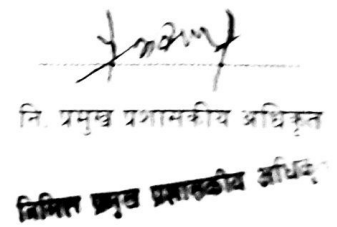 नि. प्रमुख प्रशासकीय अधिकृत
निमित्त प्रमुख प्रशासकीय अधिकृ